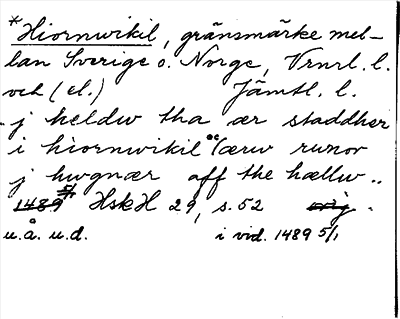 *Hiornwikil, gränsmärke mel-
lan Sverige o. Norge, Vrnrl. l.
och (el.) Jämtl. l.
j keldw tha ær staddher
i hiornwikil °(ærw runor
j hwgnær aff the hællw..
1489 5/1 HskH 29, s. 52 orig.
u.å. u.d. i vid. 1489 5/1